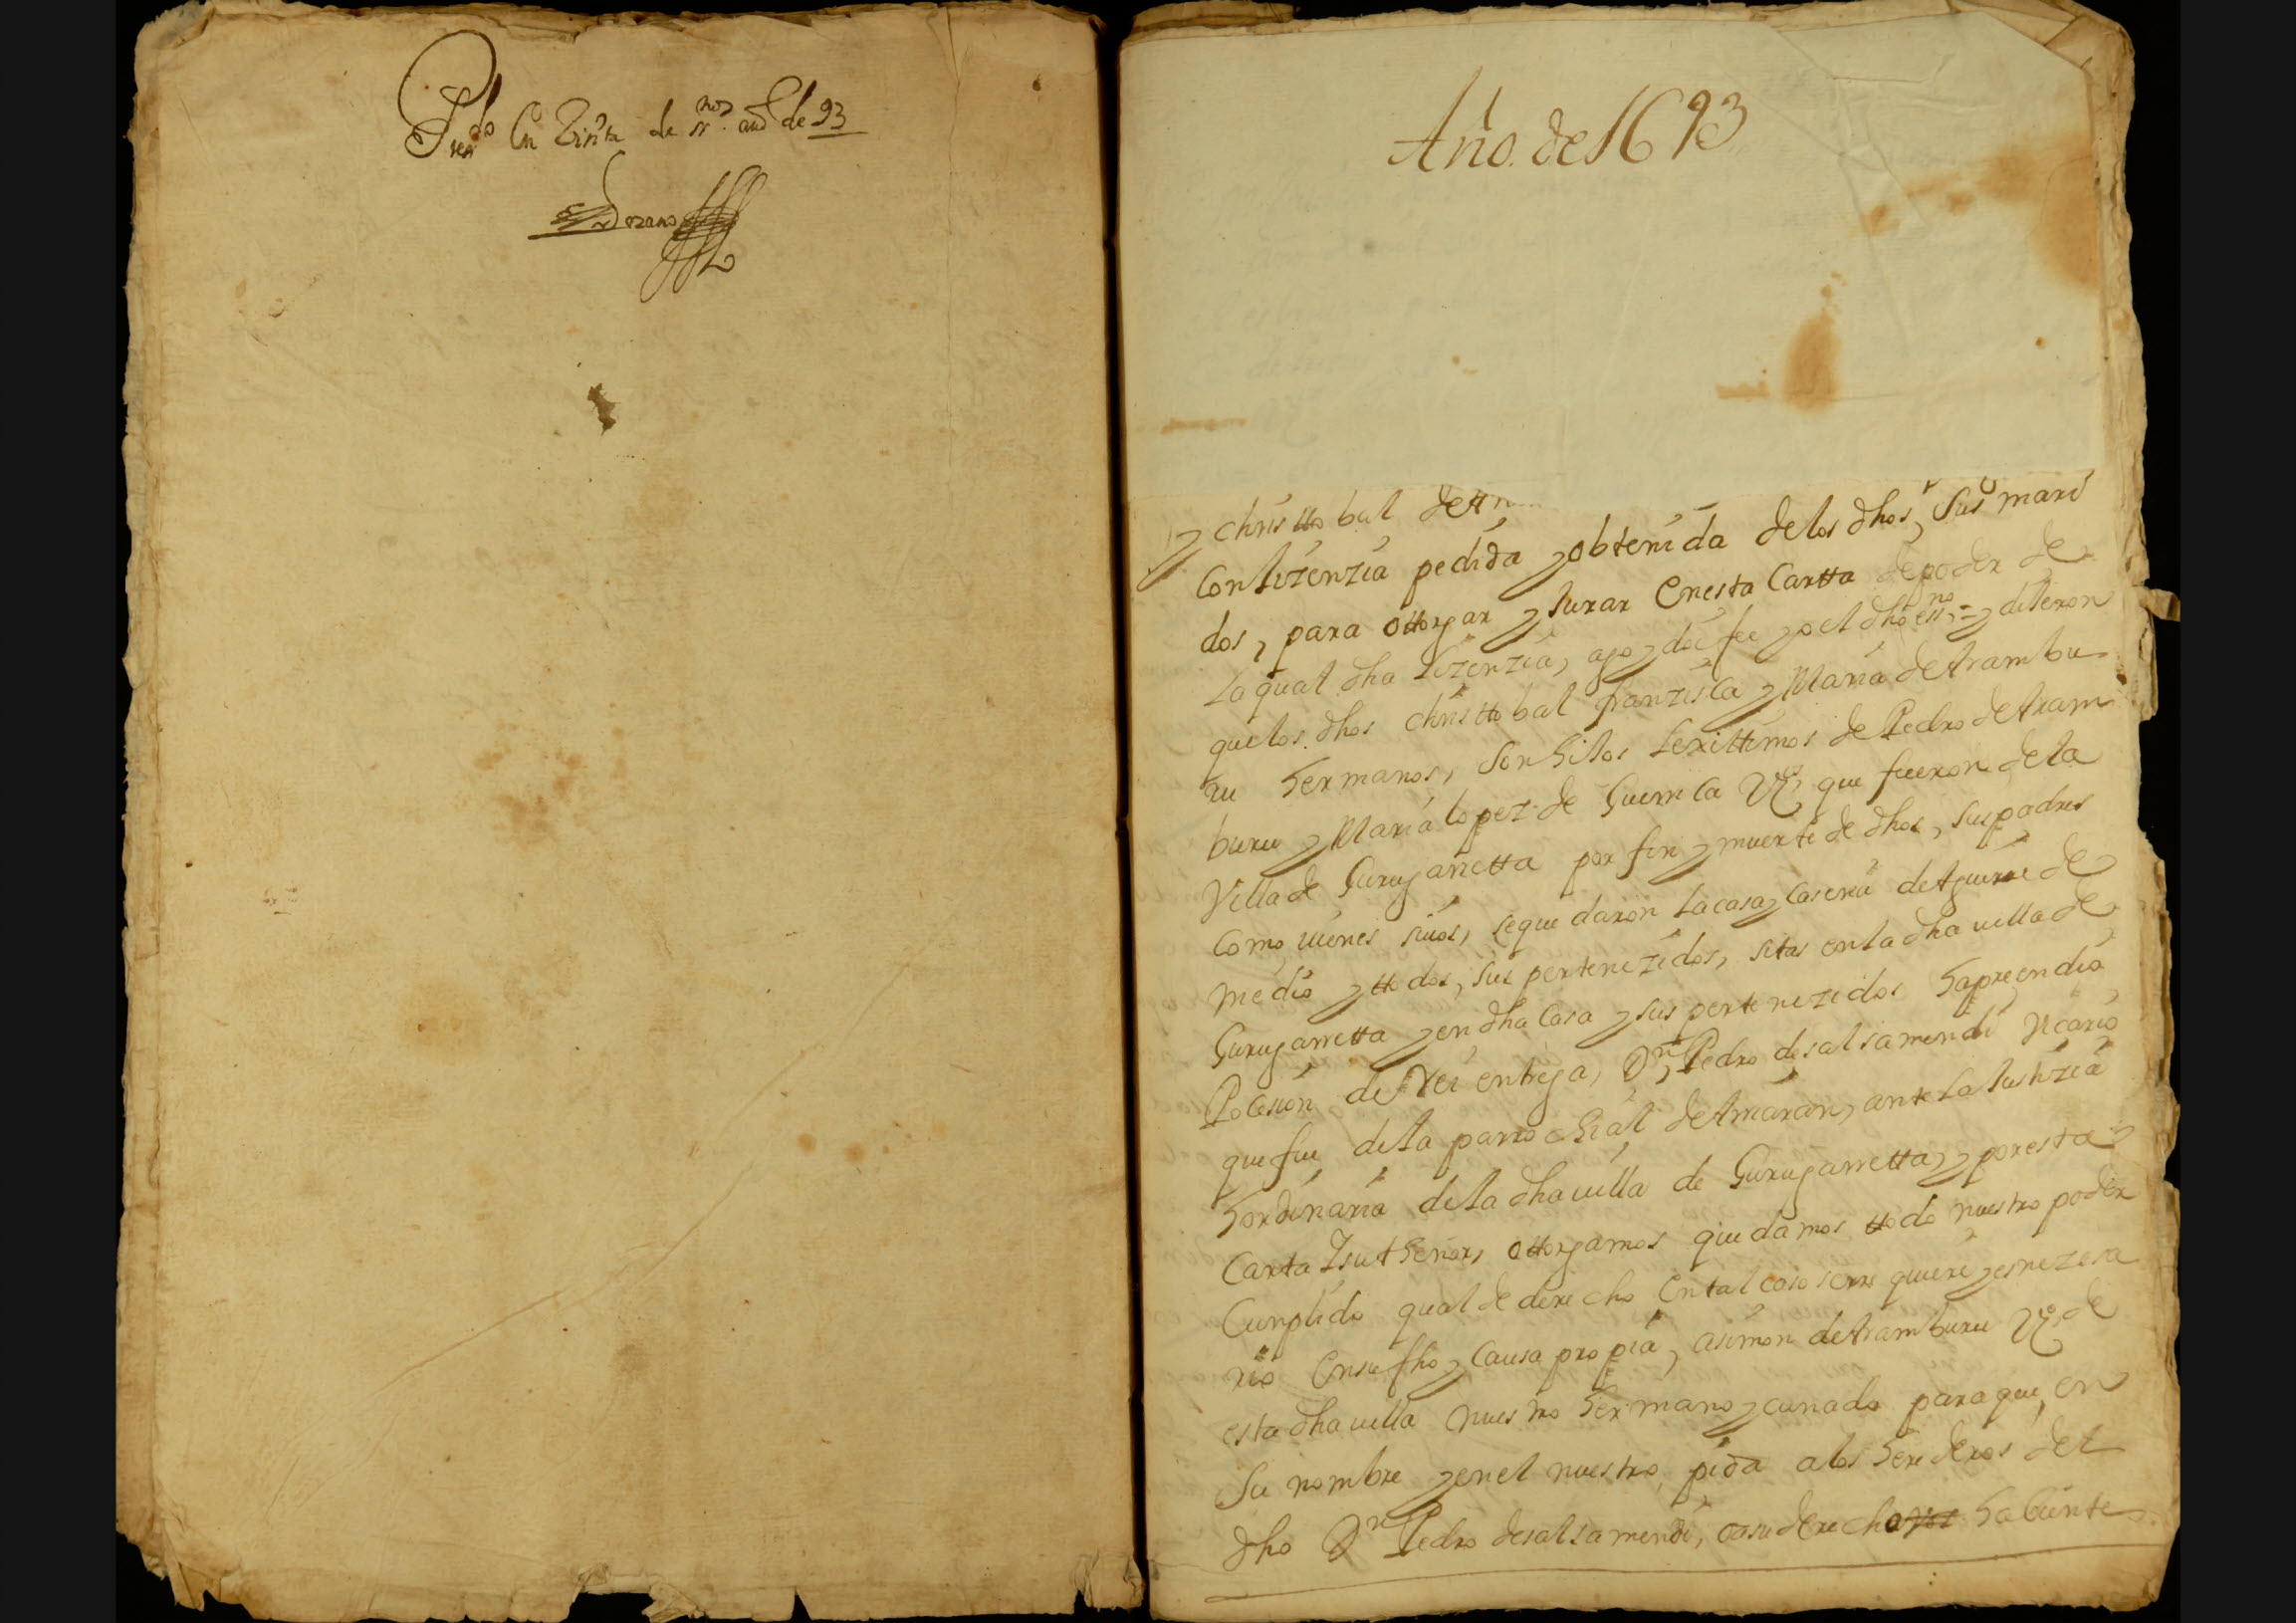 en Vissita de nro. año de 93
Lozano
Año. de 1693
y christtobal de
Conlizenzia pedida y obtenida delos dhos, sus mari
dos, para ottorgar y Jurar Enesta Cartta depoder de
La qual dha Lizenzia, ago y doi fee yo el dho essno = y dijeron
quelos dhos christtobal franzisca y Maria de Arambu
ru hermanos, son hijos Lexittimos de Pedro de Aram
buru y Maria lopez de Guernica Vos que fueron de la
Villa de Guruganetta por fin y muerte de dhos, sus padres
Como vienes suios, sequedaron La casa y Caseria de Aguirre de
medio y ttodos, sus pertenezidos, sitas en la dha villa de
Gurugarretta y en dha Casa y sus pertenezidos haprendio
Posesion de entrega, Dn Pedro desalsamendi Vicario
que fue dela parrochial de Amaran, ante La Justizia
hordinaria dela dha villa de Gurugarretta, y por esta
Carta ottorgamos quedamos ttodo nuestro poder
Cunplido qual de derecho En tal caso serre quiere y es nezesa
rio Ensu fho y Causa propia, asimon de Aramburu Vo de
esta dha villa nuestro hermano y cunado para que, en
Su nombre y en el nuestro pida alos herederos del
dho Dn Pedro desalsamendi, o asu derecho habiente